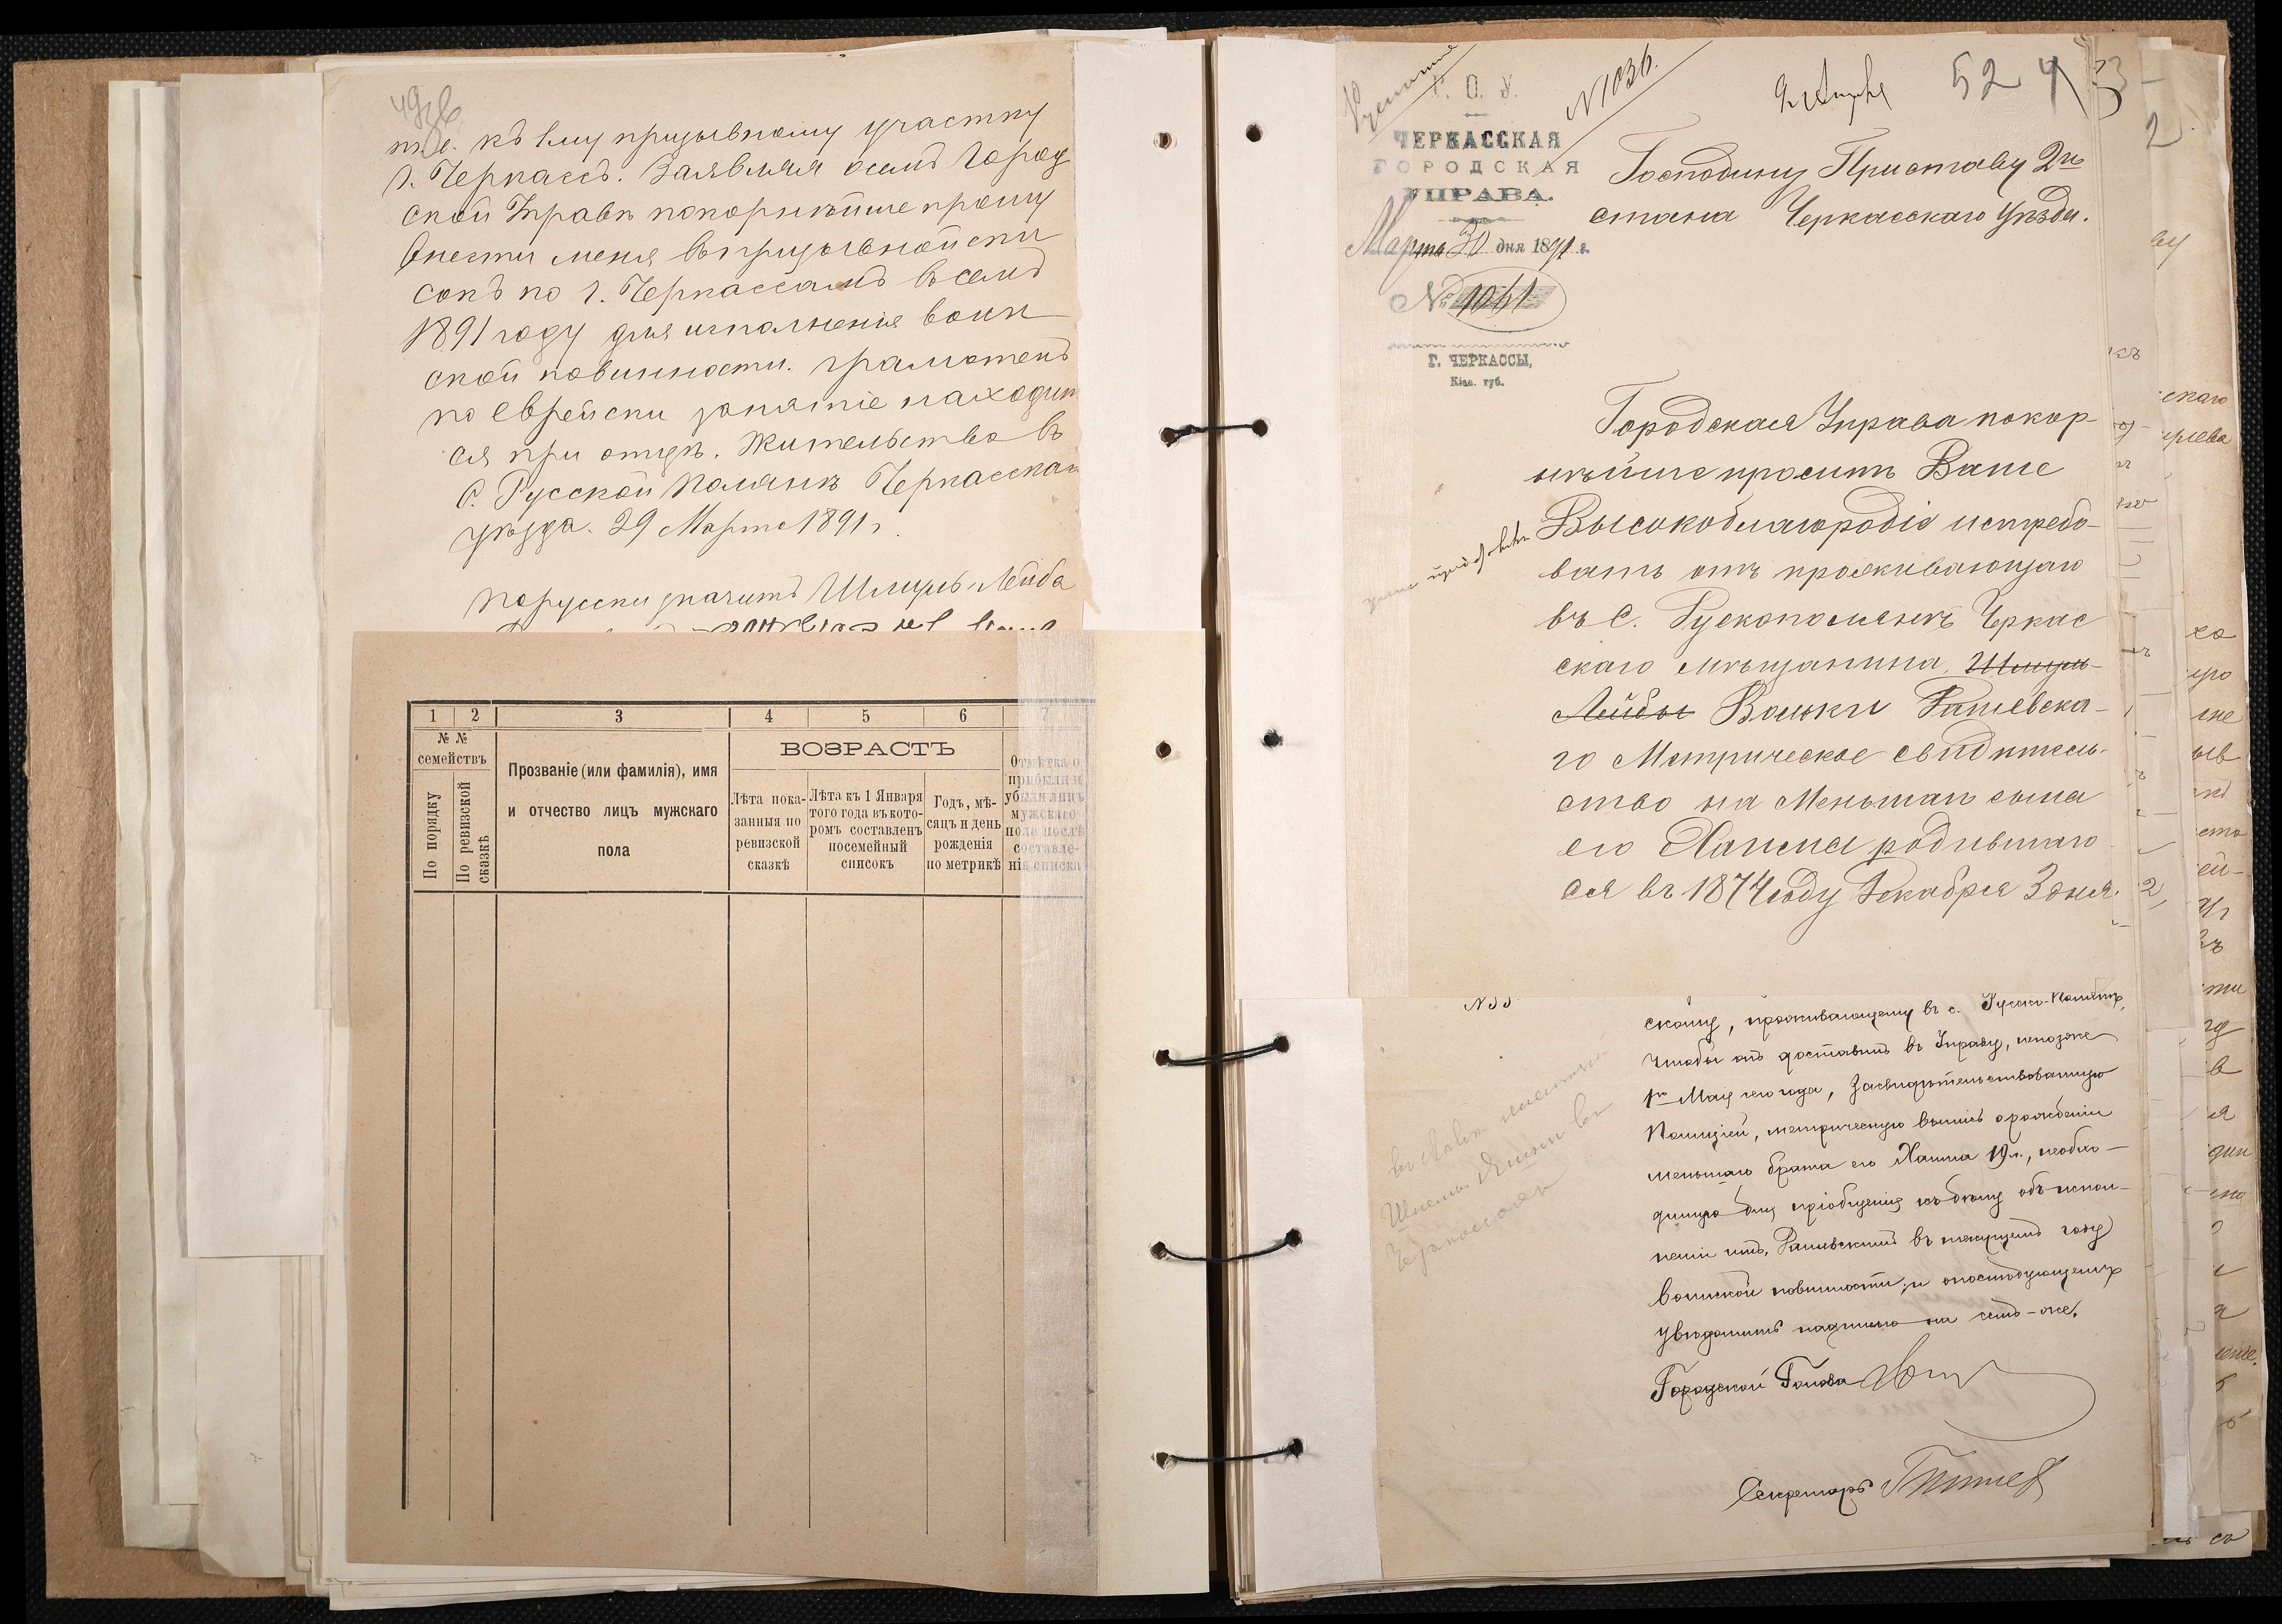 т.е. къ 1му призывному участку
г. Черкассъ. Заявляя осемъ Город
ской Управѣ покорнѣйше прошу
внести меня въ призывной спи
сокъ по г. Черкассамъ въ семъ
1891 году для исполненія воин
ской повинности. грамотенъ
по Еврейски занятіе находит
ся при отцѣ. Жительство въ
С. Русской Полянѣ Черкасскаго
уѣзда. 29 Марта 1891 г.
порусски значитъ Шмуль-Лейба
1 2 3 4 5 6 7
№ №
семействъ
По порядку
По ревизской сказкѣ
Прозваніе (или фамилія), имя
и отчество лицъ мужскаго
пола
ВОЗРАСТЪ
Лѣта пока-
занныя по
ревизской
сказкѣ
Лѣта къ 1 Января
того года въ кото-
ромъ составленъ
посемейный
списокъ
Годъ, мѣ-
сяцъ и день
рожденія
по метрикѣ
Отмѣтка о
прибыли и
убыли лицъ
мужскаго
пола послѣ
составле-
нія списка
Г. О. У.
№ 1036.
52
ЧЕРКАССКАЯ
ГОРОДСКАЯ
УПРАВА.
Марта 30 дня 1891 г.
№ 1041
Г. ЧЕРКАССЫ,
Кіев. губ.
Господину Приставу 2го
стана Черкасскаго Уѣзда.
Городская Управа покор-
нѣйше проситъ Ваше
Высокоблагородіе истребо-
вать отъ проживающаго
въ С. Рускополянѣ Черкас
скаго мѣщанина Шмуль-
Лейбы Вольки Рашевска-
го Метрическое свидѣтель-
ство на Меньшаго сына
его Хаима родившаго
ся въ 1874 году Декабря 3 дня.
скому, проживающему въ с. Русско-Полянѣ,
чтобы онъ доставилъ въ Управу, непозже
1го Мая сего года, засвидѣтельствованную
Полиціей, метрическую выпись о рожденіи
меньшаго брата его Хаима 19 л., необхо-
димую для пріобщенія къ дѣлу объ испол-
неніи имъ, Рашевскимъ въ текущемъ году
воинской повинности; и о послѣдующемъ
увѣдомить надписью на семъ-же.
Городской Голова
Секретарь